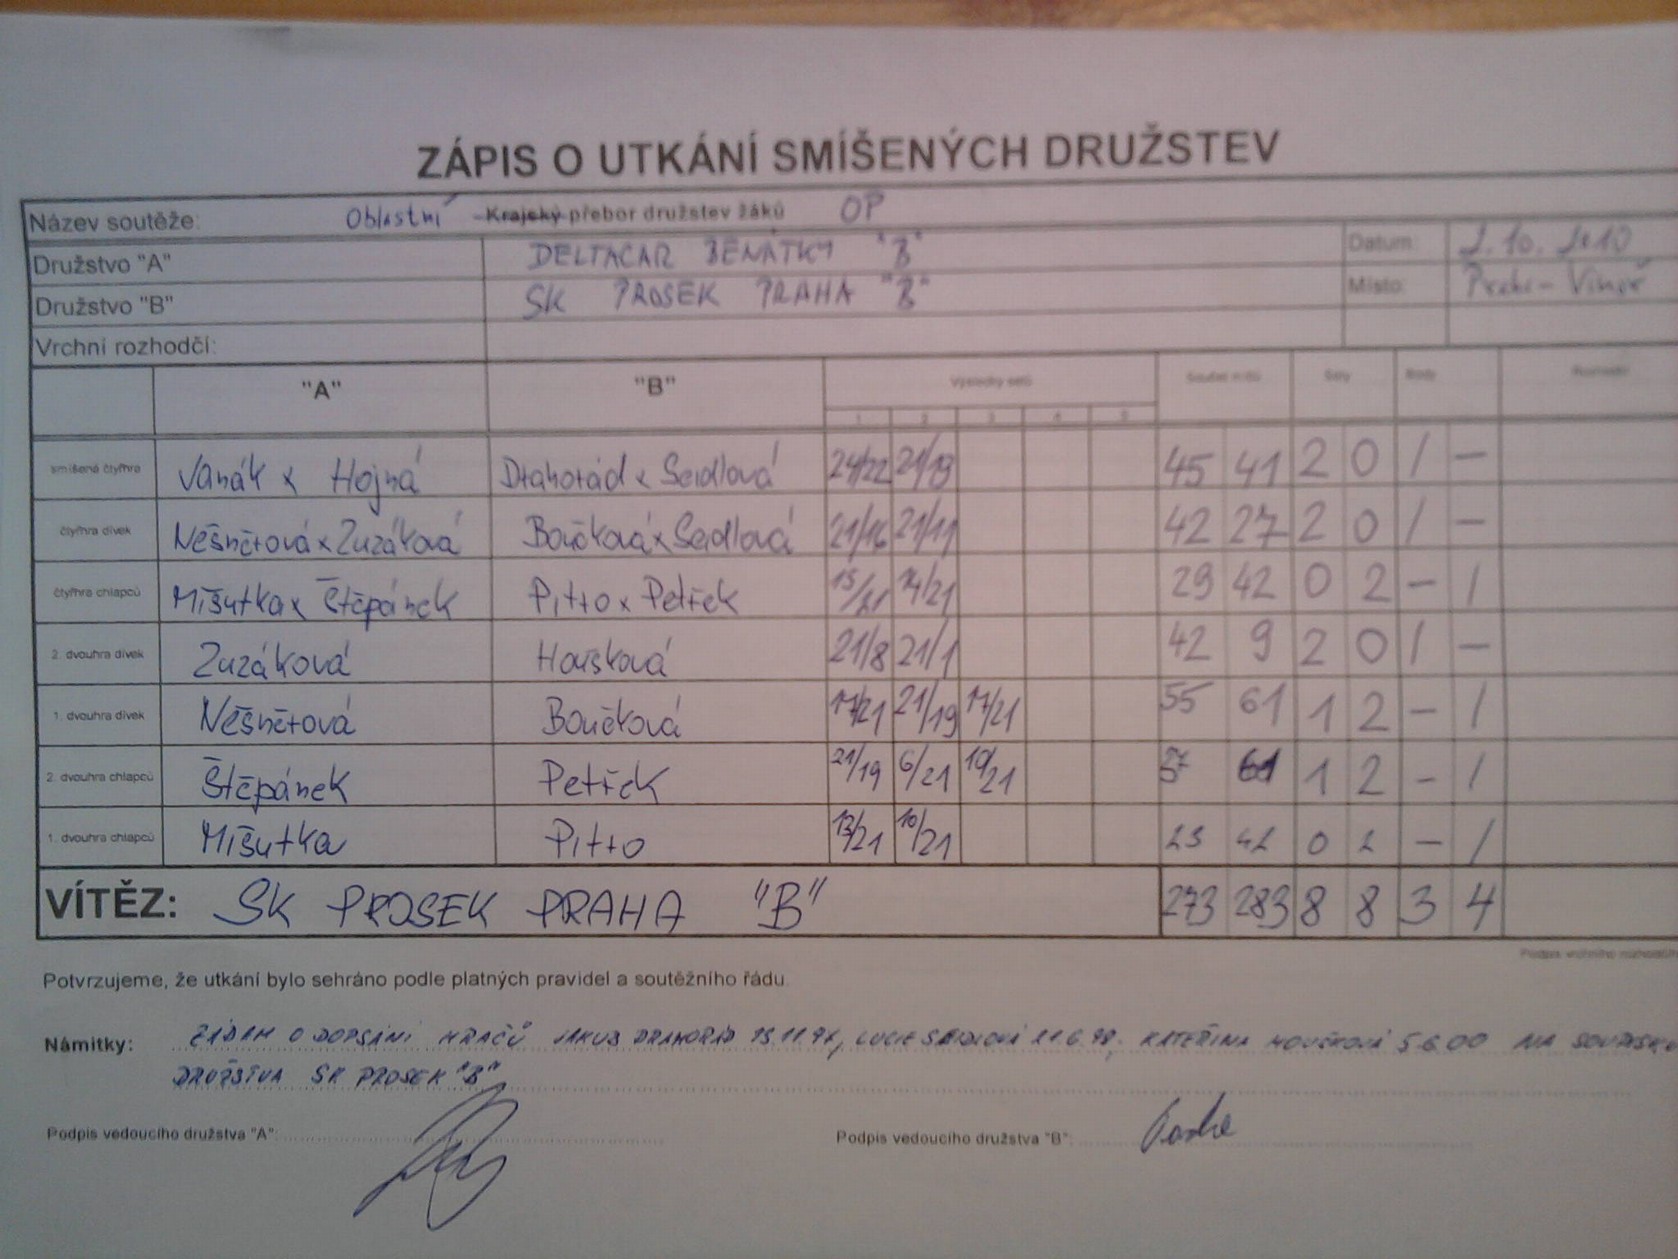 ZÁPIS O UTKÁNÍ SMÍŠENÝCH DRUŽSTEV
Název soutěže: Oblastní Krajský přebor družstev žáků OP
Družstvo "A" DELTACAR BENÁTKY "B" Datum: 2.10.2010
Družstvo "B" SK PROSEK PRAHA "B" Místo: Praha - Vinoř
Vrchní rozhodčí:
"A" "B" Výsledky setů Součet míčů Sety Body Rozhodčí
1 2 3 4 5
smíšená čtyřhra Vaňák x Hojná Drahorád x Seidlová 24/22 21/19 45 41 2 0 1 -
čtyřhra dívek Něšněrová x Zuzáková Boučková x Seidlová 21/16 21/11 42 27 2 0 1 -
čtyřhra chlapců Mišutka x Štěpánek Pitro x Petřek 15/21 14/21 29 42 0 2 - 1
2. dvouhra dívek Zuzáková Housková 21/8 21/1 42 9 2 0 1 -
1. dvouhra dívek Něšněrová Boučková 17/21 21/19 17/21 55 61 1 2 - 1
2. dvouhra chlapců Štěpánek Petřek 21/19 6/21 10/21 37 61 1 2 - 1
1. dvouhra chlapců Mišutka Pitro 13/21 10/21 23 42 0 2 - 1
VÍTĚZ: SK PROSEK PRAHA "B" 273 283 8 8 3 4
Podpis vrchního rozhodčího
Potvrzujeme, že utkání bylo sehráno podle platných pravidel a soutěžního řádu.
Námitky: ŽÁDÁM O DOPSÁNÍ HRAČŮ JAKUB DRAHORÁD LUCIE SEIDLOVÁ KATEŘINA 5.6.00 NA SOUPISKU
DRUŽSTVA SK PROSEK "B"
Podpis vedoucího družstva "A": Podpis vedoucího družstva "B":